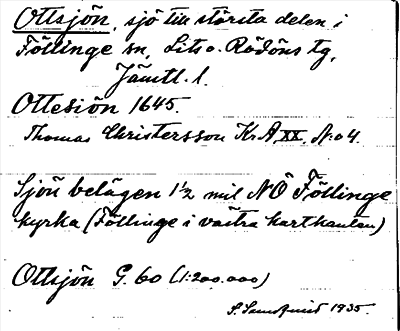 Ottsjön, sjö till största delen i
Föllinge sn, Lits o. Rödöns tg,
Jämtl. l.
Ottesiön 1645.
Thomas Christersson KrA XX. N:o 4.
Sjön belägen 1 1/2 mil NÖ Föllinge
kyrka (Föllinge i västra kartkanten)
Ottsjön G. 60 (1:200.000)
S. Sundqvist 1935.